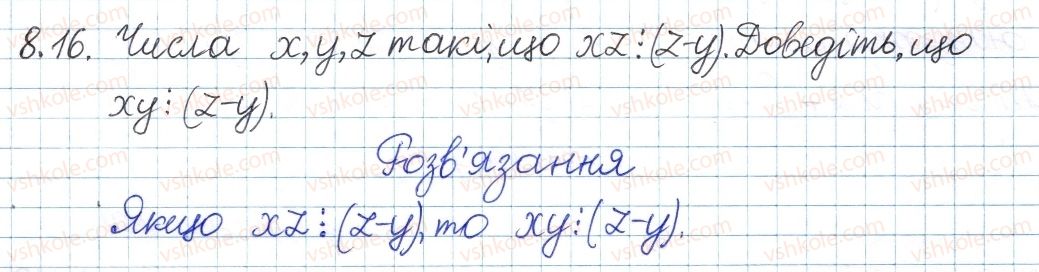 8.16. Числа x, y, z такі, що xz⋮(z-y). Доведіть, що
xy⋮(z-y).
Розв'язання
Якщо xz⋮(z-y), то xy⋮(z-y).